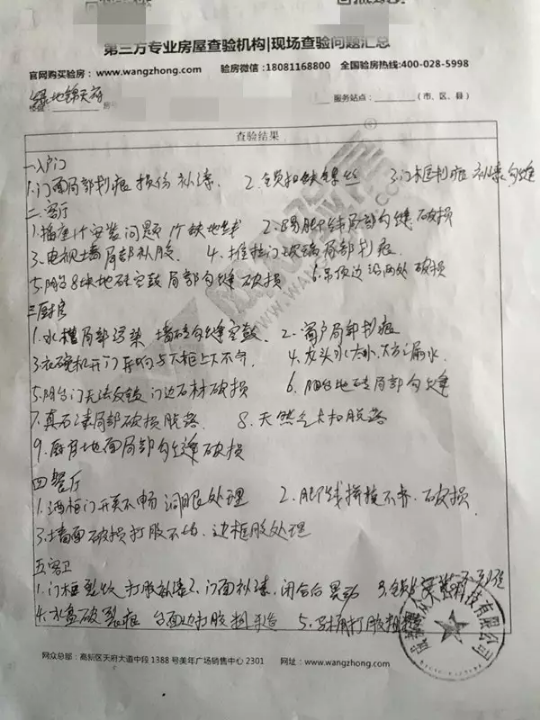 第三方专业房屋查验机构|现场查验问题汇总
官网购买验房:www.wangzhong.com 验房微信:18081168800 全国验房热线:400-028-5998
绿地锦天府
服务站点: (市、区、县)
查验结果
一、入户门
1.门面局部划痕 损伤 补漆 2.锁扣缺螺丝 3.门框划痕 补漆
二.客厅
1.插座1个安装问题 1个缺地线 2.踢脚线局部勾缝 破损
3.电视墙局部补胶 4.推拉门玻璃局部划痕
5.阳台8块地砖空鼓 局部勾缝破损 6.吊顶边沿两处破损
三.厨房
1.水槽局部污染 墙砖勾缝空鼓 2.窗户局部划痕
3.洗碗机开门 与下柜 不平 4.龙头水太小 漏水
5.阳台门无法反锁 门边石材破损 6.阳台地砖局部勾缝
7.真石漆局部破损脱落 8.天然气卡扣脱落
9.厨房地面局部勾缝破损
四.餐厅
1.酒柜门开关不畅 洞眼处理 2.踢脚线拼接不齐 破损
3.墙面破损打胶不均 边框胶处理
五.客卫
1.门框裂纹 打胶补漆 2.门面补漆 闭合后晃动 3.
4.水盆破裂痕 台面边打胶粗造 5.马桶打胶粗糙
网众总部:高新区天府大道中段 1388 号美年广场销售中心 2301 网址:www.wangzhong.com